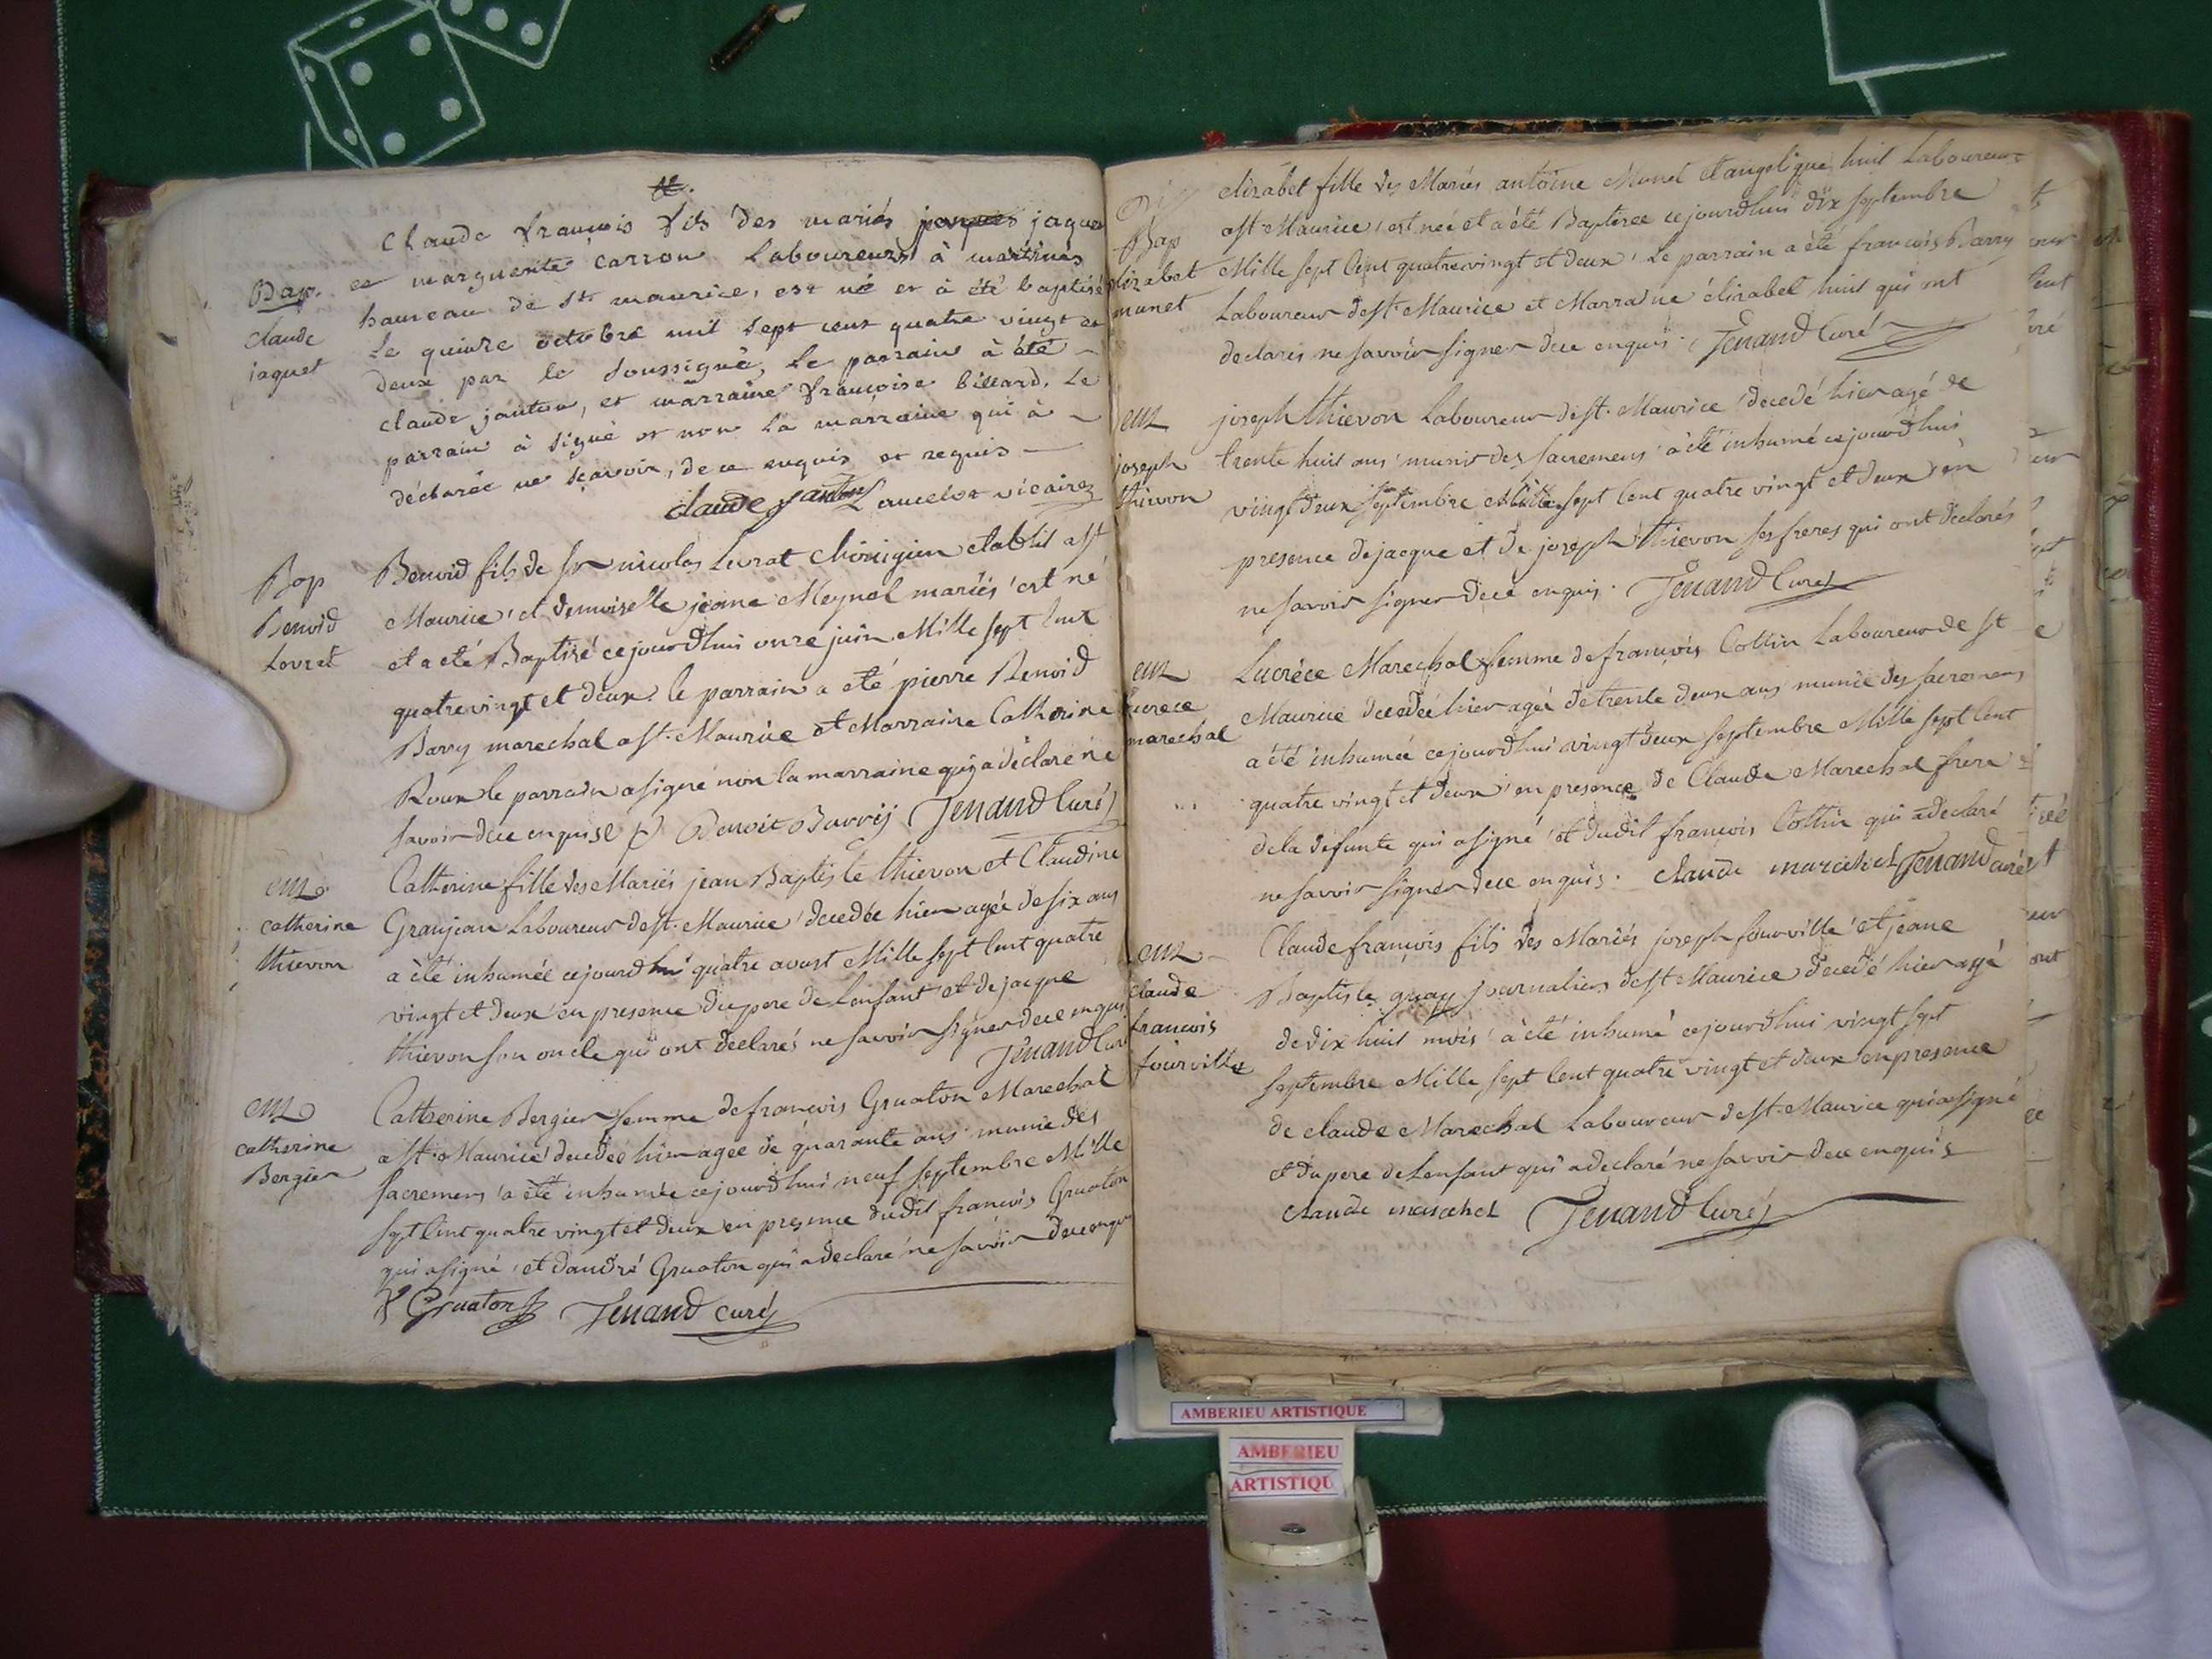 Claude françois fils des mariés jaques jaquet
Bap. et marguerite carron Laboureurs à martinas
claude hameau de St maurice, est né et à été baptisé
jaquet Le quinze octobre mil sept cent quatre vingt et
deux par le soussigné, Le parrain à été
claude janton, et marraine françoise billard. Le
parrain à signé et non La marraine qui à
déclarée ne sçavoir, de ce enquis et requis
claude janton Lancelot vicaire
Bap Benoid fils de sr nicolas Livrat chirurgien etablit a st
Benoid Maurice et demoiselle jeane Meynal mariés est né
Lovrat et a eté Baptizé cejourdhui onze juin Mille sept Cent
quatrevingt et deux. le parrain a eté pierre Benoid
Barry marechal a st. Maurice et Marraine Catherine
Roux le parrain a signé non la marraine qui a déclaré ne
savoir de ce enquise P Benoit Barrij Tenand Curé
Catherine fille des Mariés jean Baptiste thievon et Claudine
catherine Granjean Laboureur de st. Maurice decedée hier agée de six ans
thievon a été inhumée cejourdhui quatre aoust Mille sept Cent quatre
vingt et deux en presence du pere de Lenfant et de jacque
thievon son oncle qui ont declarés ne savoir signer de ce enquis
Tenand Curé
Catherine Bergier femme de francois Gruaton Marechal
catherine a st. Maurice decedée hier agée de quarante ans munie des
Bergier sacremens a été inhumée cejourdhui neuf septembre Mille
sept Cent quatre vingt et deux en presence dudit francois Gruaton
qui a signé et dandré Gruaton qui a declaré ne savoir de ce enquis
f Gruaton Tenand curé
elizabet fille des Mariés antoine Munet et angelique huit Laboureur
Bap a st Maurice est neé et a été Baptisee cejourdhui dix septembre
elizabet Mille sept Cent quatrevingt et deux Le parrain a été francois Barry
munet Laboureur de st. Maurice et Marraine élizabet huit qui ont
declarés ne savoir signer de ce enquis. Tenand Curé
joseph thievon Laboureur de st. Maurice decedé hier agé de
joseph trente huit ans munis des sacremens a été inhumé cejourdhui
thievon vingt deux septembre Mille sept Cent quatre vingt et deux en
presence de jacque et de joseph thievon ses freres qui ont declarés
ne savoir signer de ce enquis. Tenand Curé
Lucréce Marechal femme de francois Collin Laboureur de st
Lucrece Maurice decedée hier agée de trente deux ans munie des sacremens
marechal a été inhumée cejourdhui vingt deux septembre Mille sept Cent
quatre vingt et deux en presence de Claude Marechal frere
de la defunte qui a signé et dudit françois Collin qui a declaré
ne savoir signer de ce enquis. Claude marechal Tenand curé
Claude françois fils des Mariés joseph fourville et jeane
claude Baptiste guay journalier de st Maurice decedé hier agé
francois de dix huit mois a été inhumé cejourdhui vingt sept
fourville septembre Mille sept Cent quatre vingt et deux en presence
de claude Marechal Laboureur de st. Maurice qui a signé
et du pere de Lenfant qui a declaré ne savoir de ce enquis
claude marechal Tenand Curé
AMBERIEU ARTISTIQUE
AMBERIEU
ARTISTIQU